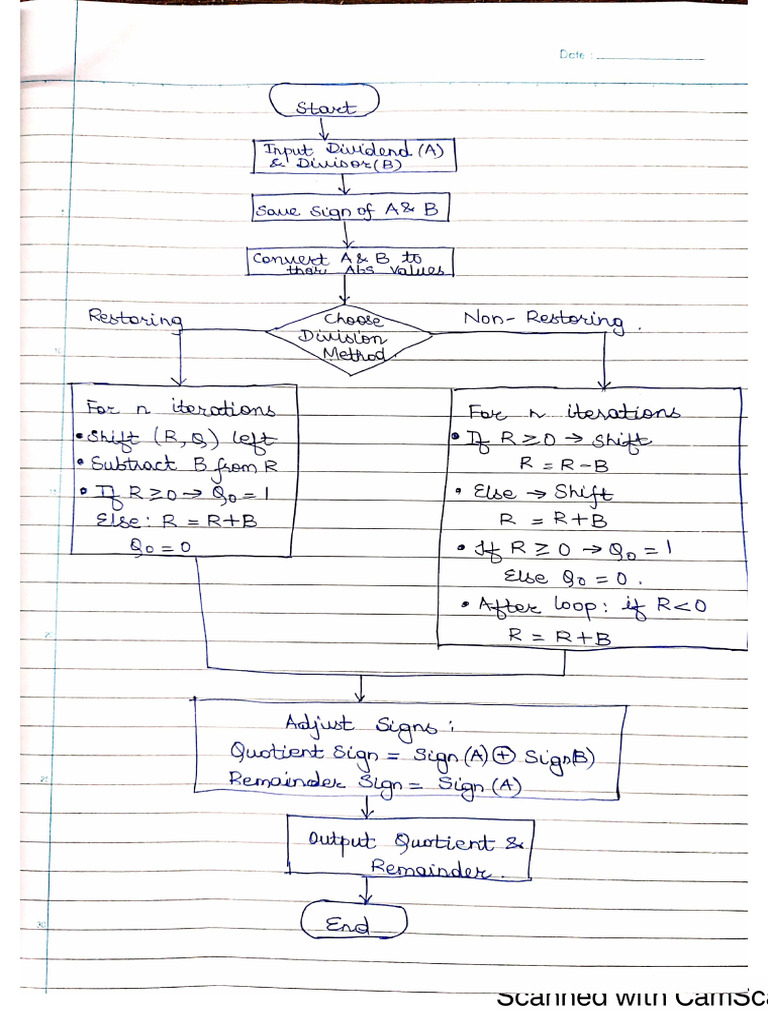 Date :
Start
Input Dividend (A)
& Divisor (B)
Save Sign of A & B
Convert A & B to
thar Abs values
Choose
Division
Method
Restoring
Non-Restoring.
For n iterations
• Shift (R, Q) left
• Subtract B from R
• If R ≥ 0 → Q0 = 1
Else: R = R+B
Q0 = 0
For n iterations
• If R ≥ 0 → Shift
R = R-B
• Else → Shift
R = R+B
• If R ≥ 0 → Q0 = 1
Else Q0 = 0.
• After loop: if R<0
R = R+B
Adjust Signs:
Quotient Sign = Sign (A) ⊕ Sign(B)
Remainder Sign = Sign (A)
Output Quotient &
Remainder.
End
20
25
30
Scanned with CamSca